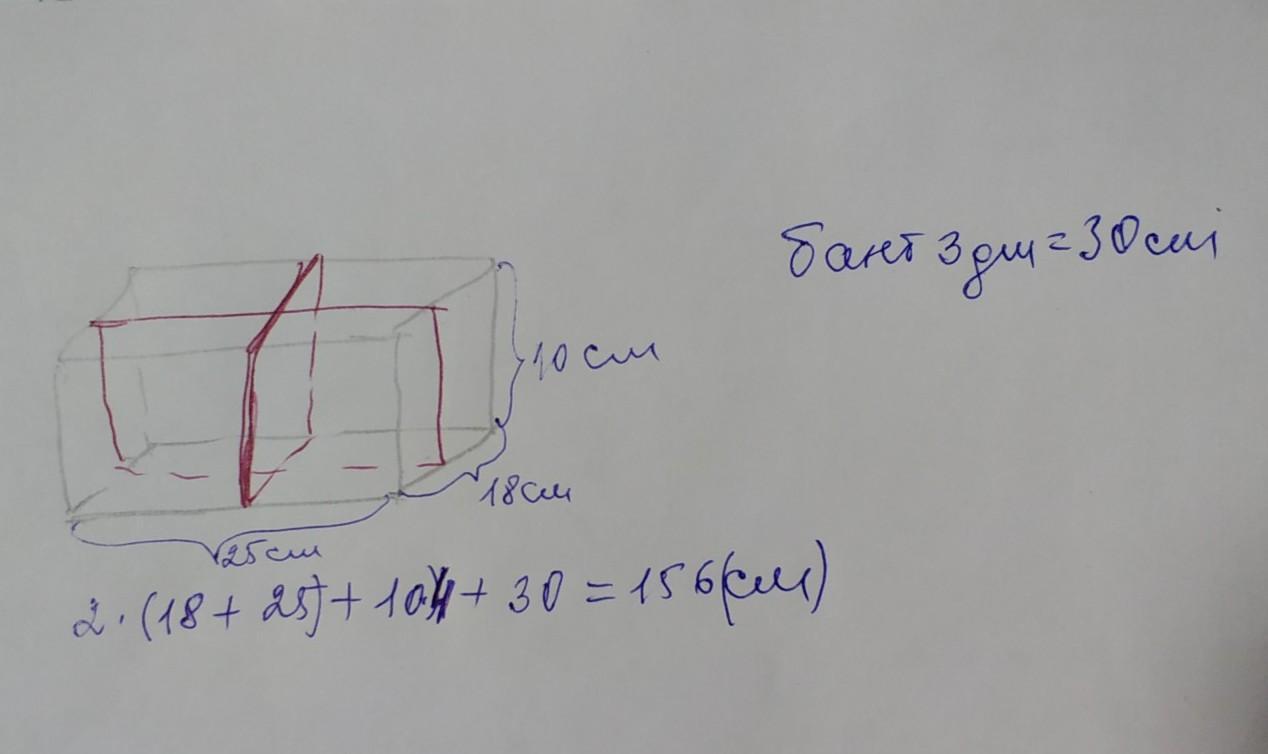 бант 3 дм = 30 см
10 см
18 см
25 см
2 · (18 + 25) + 10·4 + 30 = 156 (см)